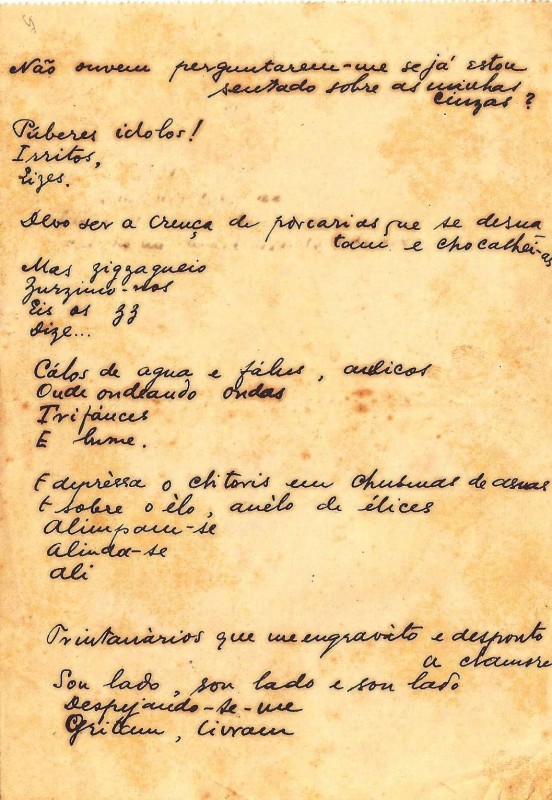 Não ouvem perguntarem-me se já estou
sentado sobre as minhas
cinzas?
Púberes idolos!
Irritos,
Eizes.
Devo ser a crença de porcarias que se desna
tam e chocalhei-as
Mas zigzagueio
Zurzimo-nos
Eis os zz
Dize...
Cálos de agua e fálus, aulicos
Onde ondeando ondas
Trifánces
E lume.
E depréssa o clitoris em chusmas de asnas
E sobre o élo, anélo de élices
Alimpam-se
Alinda-se
Ali
Trintanários que me engravito e desponto
a clamore
Sou lado, sou lado e sou lado
Despejando-se-me
Gritam, livram